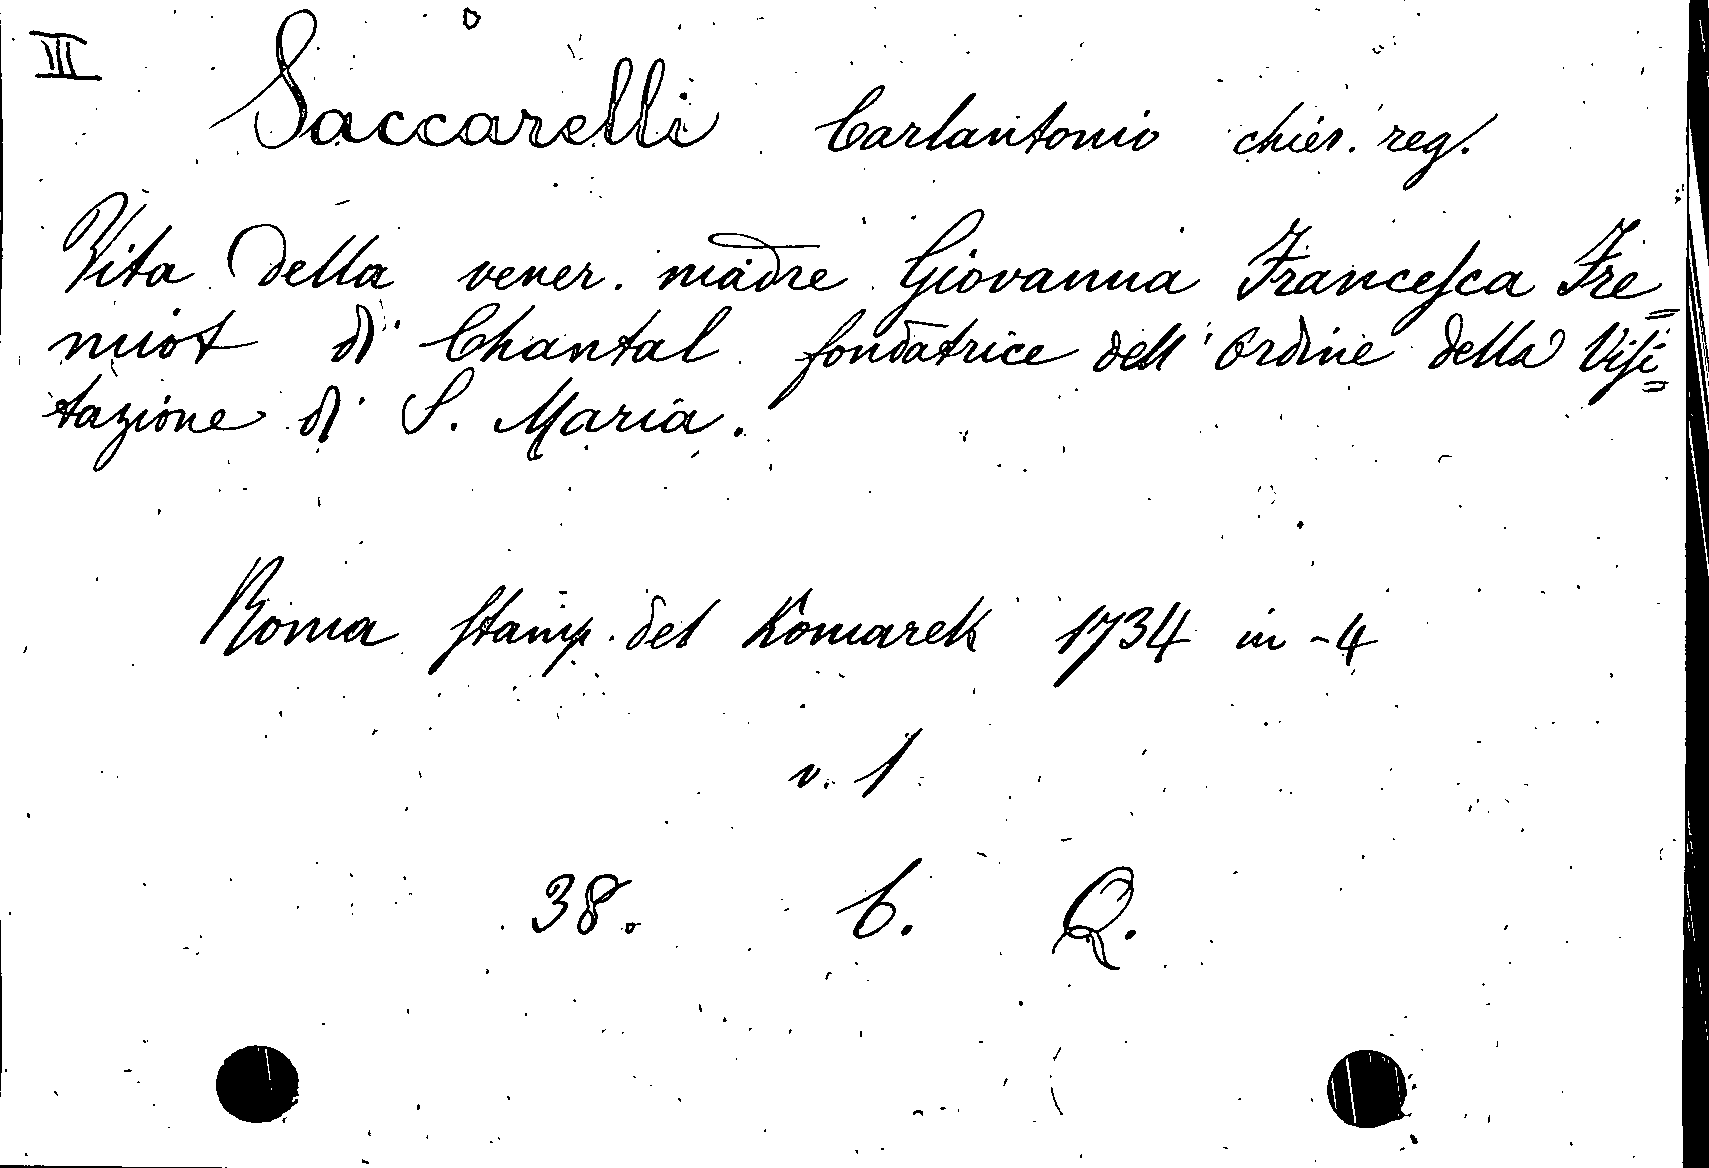 III
Saccarelli Carlantonio chier. reg.
Vita della vener. madre Giovanna Francesca Fre=
miot di Chantal fondatrice dell' Ordine della Visi=
tazione di S. Maria.
Roma stamp. del Komarek 1734 in-4
v. 1
38. C. Q.